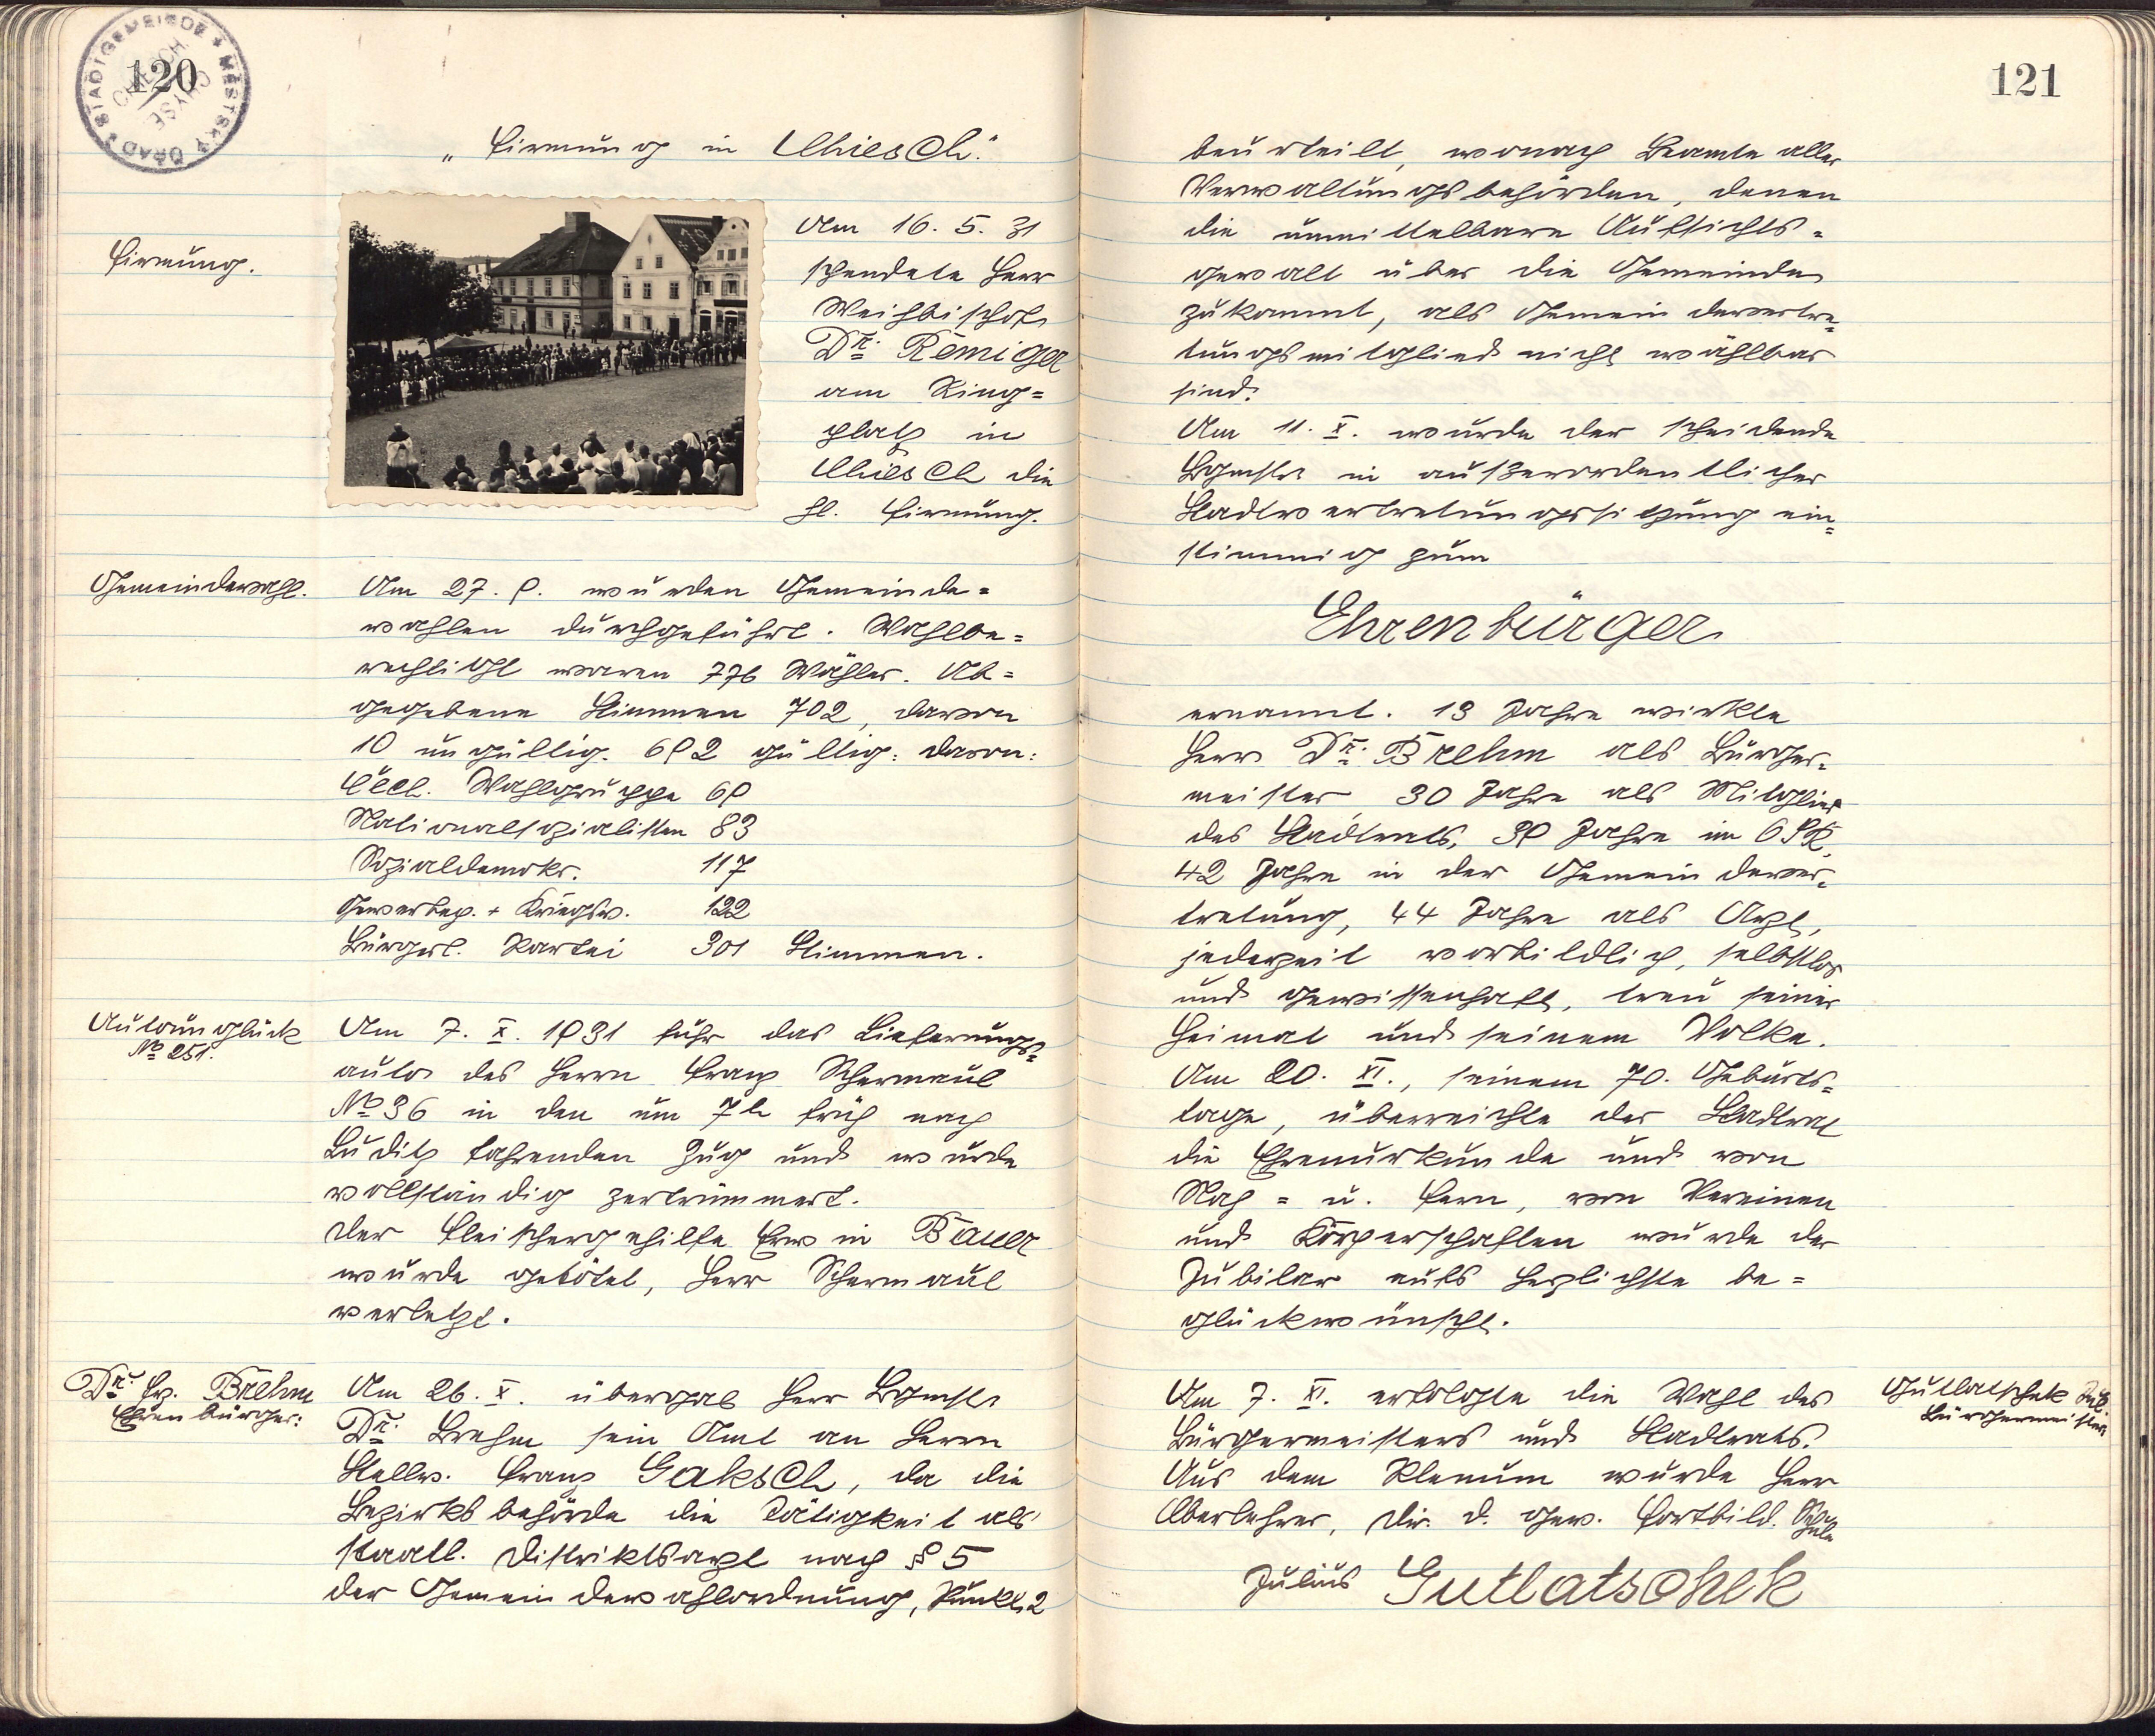 120
STADTGEMEINDE * MĚSTSKÝ ÚŘAD *
CHIESCH
CHYŠE
„Firmung in Chiesch."
Firmung.
Am 16. 5. 31
spendete Herr
Weihbischof
Dr. Remiger
am Ring=
platz in
Chiesch die
hl. Firmung.
Gemeindewahl.
Am 27. 9. wurden Gemeinde=
wahlen durchgeführt. Wahlbe=
rechtigt waren 776 Wähler. Ab=
gegebene Stimmen 702, davon
10 ungültig. 692 gültig: davon:
Čech. Wahlgruppe 69
Nationalsozialisten 83
Sozialdemokr. 117
Gewerbep. + Kriegsv. 122
Bürgerl. Partei 301 Stimmen.
Autounglück
No 251.
Am 7. X. 1931 fuhr das Lieferungs=
auto des Herrn Franz Schermaul
No 36 in den um 7h früh nach
Luditz fahrenden Zug und wurde
vollständig zertrümmert.
Der Fleischergehilfe Erwin Bauer
wurde getötet, Herr Schermaul
verletzt.
Dr. Fr. Brehm
Ehrenbürger:
Am 26. X. übergab Herr Bgmstr
Dr. Brehm sein Amt an Herrn
Stellv. Franz Gaksch, da die
Bezirksbehörde die Tätigkeit als
staatl. Distriktsarzt nach § 5
der Gemeindewahlordnung, Punkt 2
121
beurteilt, wonach Beamte aller
Verwaltungsbehörden, denen
die unmittelbare Aufsichts=
gewalt über die Gemeinden
zukommt, als Gemeindevertre=
tungsmitglied nicht wählbar
sind.
Am 11. X. wurde der scheidende
Bgmstr in außerordentlicher
Stadtvertretungssitzung ein=
stimmig zum
Ehrenbürger
ernannt. 13 Jahre wirkte
Herr Dr. Brehm als Bürger=
meister, 30 Jahre als Mitglied
des Stadtrats, 39 Jahre im O.S.R.
42 Jahre in der Gemeindever=
tretung, 44 Jahre als Arzt,
jederzeit vorbildlich, selbstlos
und gewissenhaft, treu seiner
Heimat und seinem Volke.
Am 20. XI., seinem 70. Geburts=
tage, überreichte der Stadtrat
die Ehrenurkunde und von
Nah = u. Fern, von Vereinen
und Körperschaften wurde der
Jubilar aufs herzlichste be=
glückwünscht.
Am 7. XI. erfolgte die Wahl des
Bürgermeisters und Stadtrats.
Aus dem Plenum wurde Herr
Oberlehrer, Dir. d. gew. Fortbild. Schule
Julius Gutlatschek
Gutlatschek Jul.
Bürgermeister